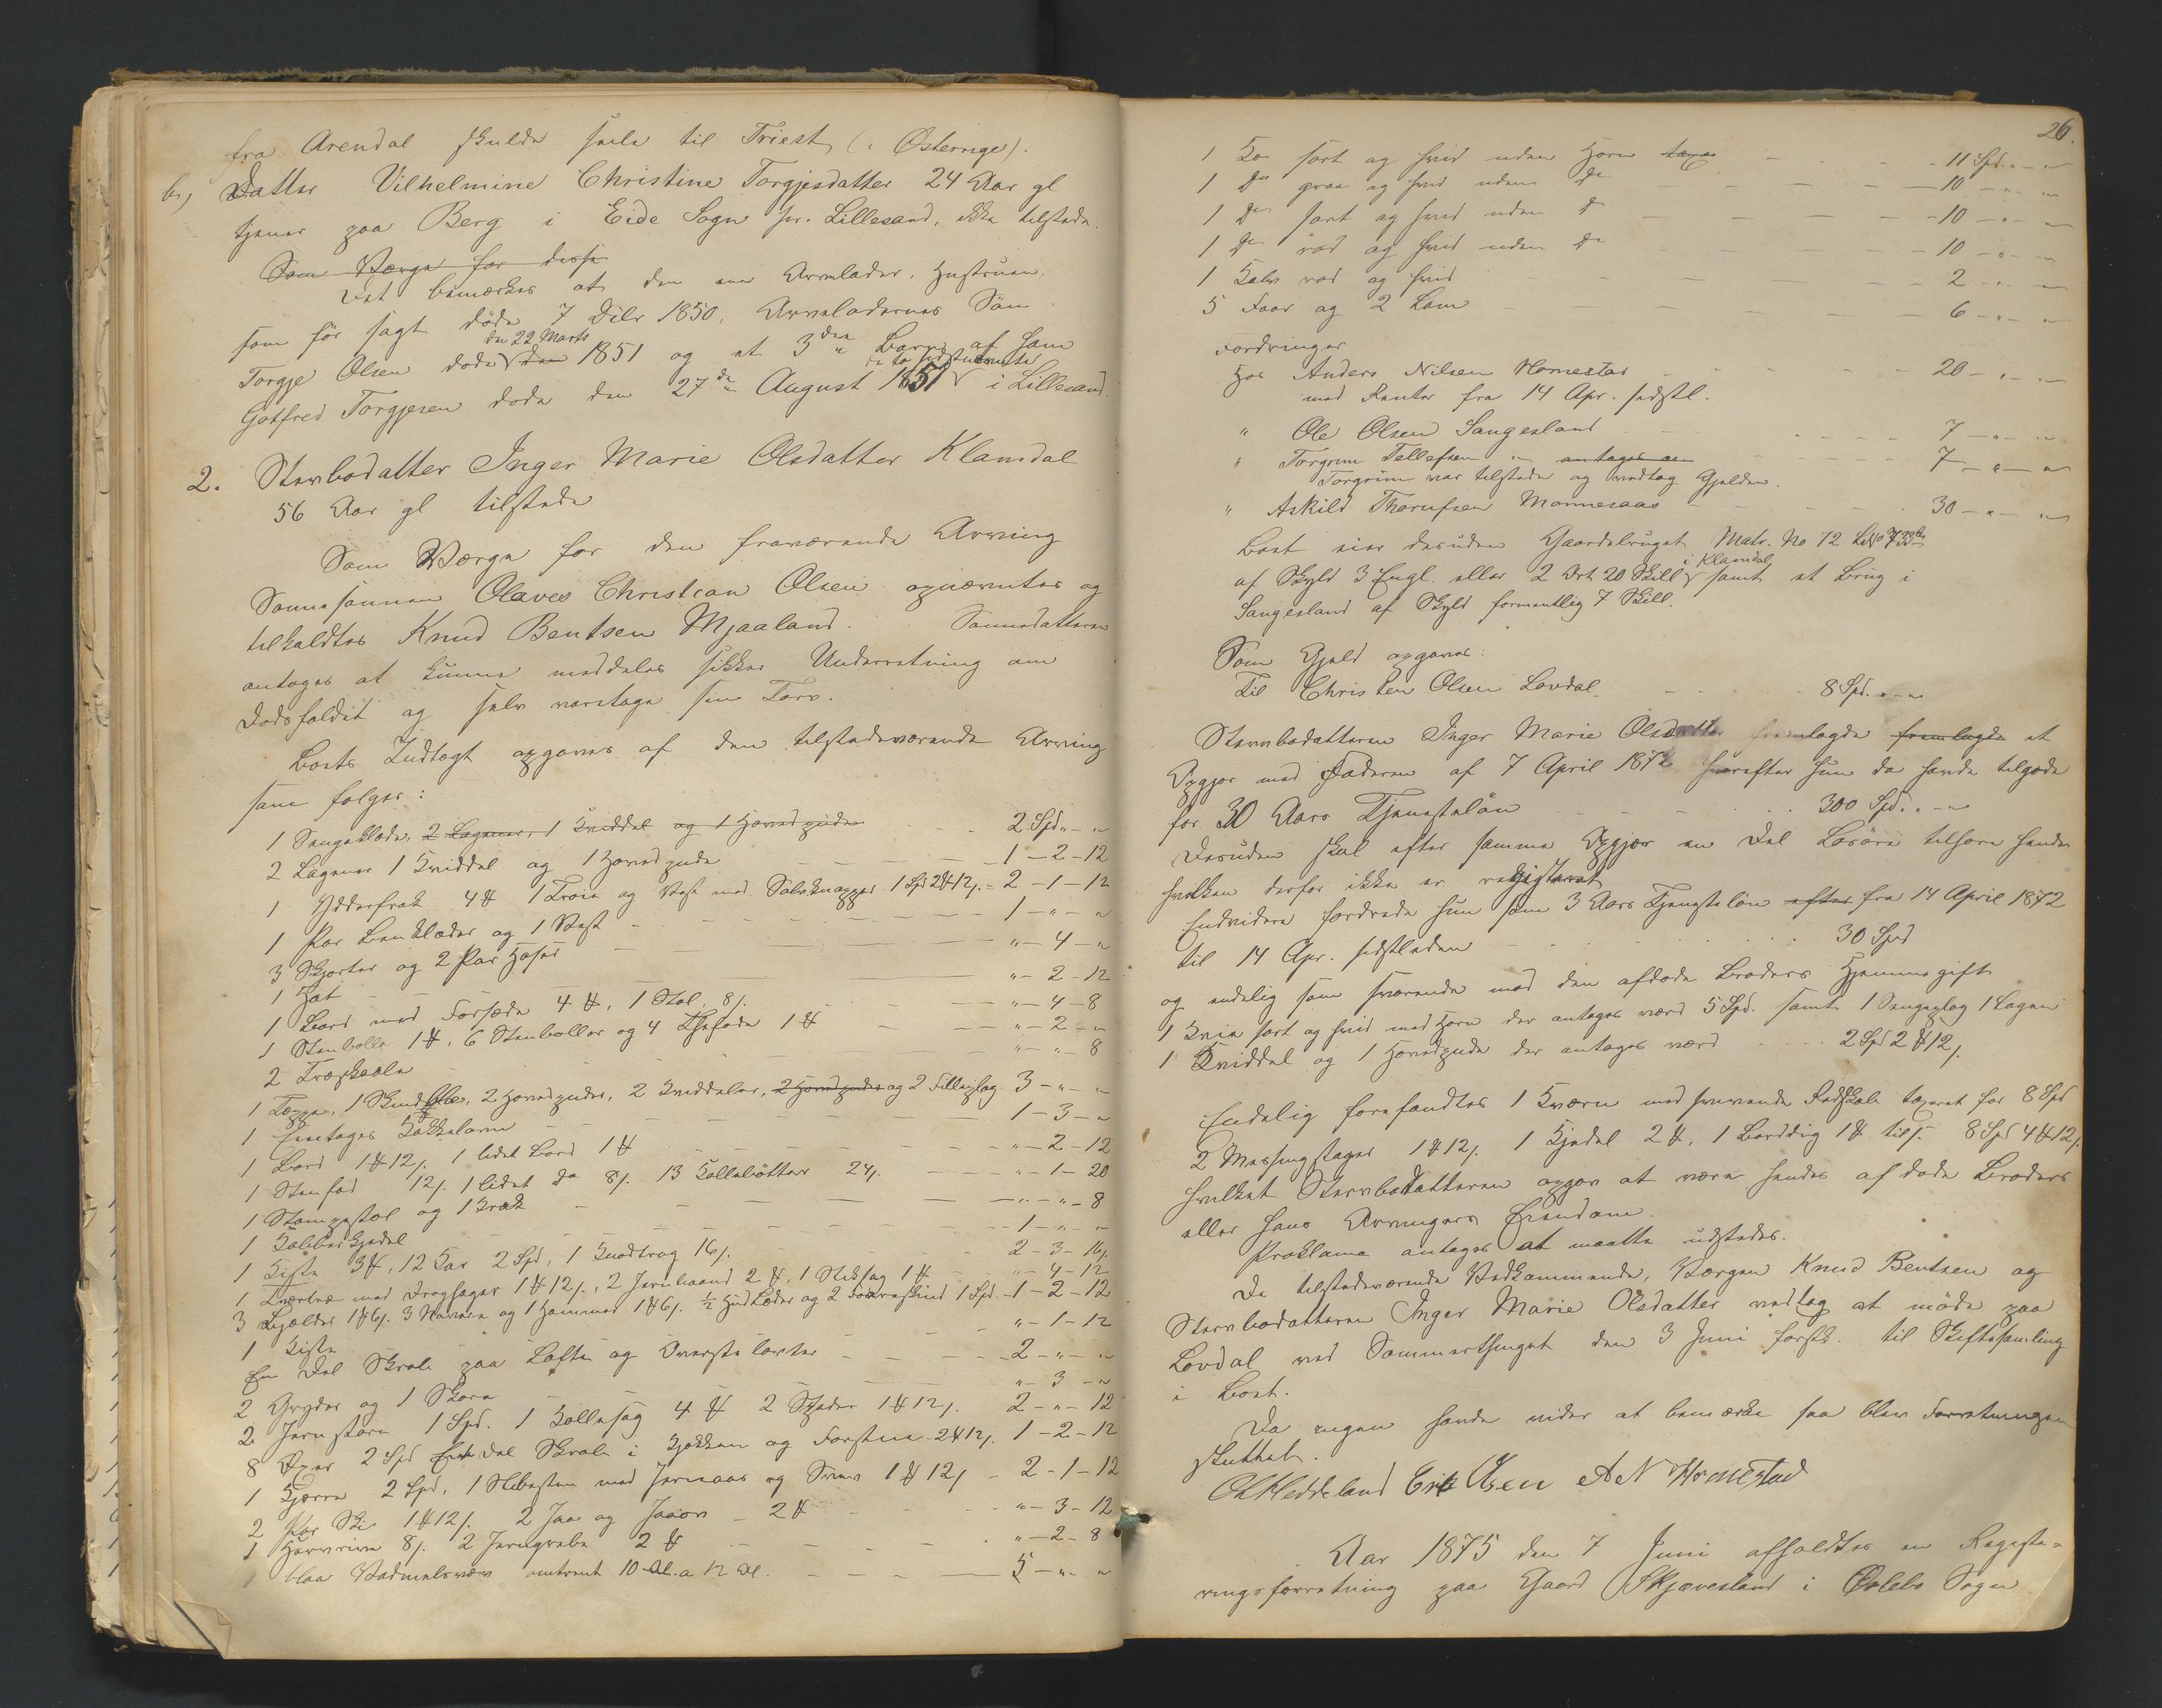 fra Arendal skulde seile til Triest (i Østerrige).
b, Datter Vilhelmine Christine Torgjesdatter 24 Aar gl
tjener paa Berg i Eide Sogn pr. Lillesand, ikke tilstede.
Som Værge for disse
Det bemærkes at den ene Arvelader, Hustruen,
som før sagt døde 7 Dbr 1850, Arveladernes Søn
den 22 Marts
Torgje Olsen døde den 1851 og et 3die Barn af ham
de to sidstnævnte
Gotfred Torgjesen døde den 27de August 1851 i Lillesand.
2. Stervbodatter Inger Marie Olsdatter Klamdal
56 Aar gl tilstede
Som Værge for den fraværende Arving
Sønnesønnen Olaves Christian Olsen opnævntes og
tilkaldtes Knud Bentsen Mjaaland. Sønnedatteren
antoges at kunne meddeles sikker Underretning om
Dødsfaldet og selv varetage sin Tarv.
Boets Indtægt opgaves af den tilstedeværende Arving
som følger:
1 Sengeklæde, 2 Lagener, 1 Kviddel og 1 Hovedpude 2 Spd. " "
2 Lagener 1 Kviddel og 1 Hovedpude 1 - 2 - 12
1 Ydderfrak 4 ort 1 Trøie og Vest med Sølvknapper 1 Spd 2 ort 12 s. = 2 - 1 - 12
1 Par Benklæder og 1 Vest 1 - " - "
3 Skjorter og 2 Par Hoser " - 4 - "
1 Hat " - 2 - 12
1 Bord med Forsæde 4 ort, 1 Stol 8 s. " - 4 - 8
1 Stenbolle 1 ort, 6 Stenboller og 4 Thefade 1 ort " - 2 - "
2 Træskaale " - " - 8
1 Teppe, 1 Skindfeld, 2 Hovedpuder, 2 Kviddeler, 2 Hovedpuder og 2 Filleplag 3 - " - "
1 Femtages Kakkelovn 1 - 3 - "
1 Bord 1 ort 12 s. 1 lidet Bord 1 ort " - 2 - 12
1 Stenfad 12 s. 1 lidet do 8 s. 13 Kollebøtter 24 s. " - 1 - 20
1 Stampestol og 1 Krak " - " - 8
1 Kobberkjedel 1 - " - "
1 Kiste 3 ort, 12 Kar 2 Spd, 1 Knadtrog 16 s. 2 - 3 - 16
1 Tværtræ med Dragsager 1 ort 12 s., 2 Jernbaand 2 ort, 1 Stiksag 1 ort " - 4 - 12
3 1 ort 6 s. 3 Navere og 1 Hammer 1 ort 6 s. ½ Hud Læder og 2 Faareskind 1 Spd. 1 - 2 - 12
1 Kiste " - 1 - 12
En Del Skrab paa Loftet og Øverste loftet 2 - " - "
2 Gryder og 1 Skara " - 3 - "
2 Jernstøre 1 Spd. 1 Kollesag 4 ort 2 Spader 1 ort 12 s. 2 - " - 12
8 Øxer 2 Spd En Del Skrab i Kjøkken og Forstue 2 ort 12 s. 1 - 2 - 12
1 Kjærre 2 Spd, 1 Slibesten med Jernaas og Sveiv 1 ort 12 s 2 - 1 - 12
2 Par Ski 1 ort 12 s. 2 Jaa og Jaaorv 2 ort " - 3 - 12
1 Harvrive 8 s. 2 Jerngreb 2 ort " - 2 - 8
1 blaa Vadmelsvæv omtrent 10 Al. a 12 Al. 5 - " - "
26.
1 Ko sort og hvid uden Horn taxe 11 Spd. - "
1 do graa og hvid uden do 10 - " - "
1 do sort og hvid uden do 10 - " - "
1 do rød og hvid uden do 10 - " - "
1 Kalv rød og hvid 2 - " - "
5 Faar og 2 Lam 6 - " - "
Fordringer
Hos Anders Nilsen Homestad 20 - " - "
med Renter fra 14 Apr. sidstl.
" Ole Olsen Sangesland 7 - " - "
" Torgrim Tellefsen " antages en 7 - " - "
Torgrim var tilstede og vedtog Gjelden.
" Askild Thorufsen Monnesaas 30 - " - "
Boet eier desuden Gaardsbruget Matr. No 72 Lb No
i Klamdal
af Skyld 3 Engl. eller 2 Ort 20 Skill samt et Brug i
Sangesland af Skyld formentlig 7 Skill.
Som Gjeld opgaves:
Til Christen Olsen Lovdal 8 Spd. " - "
Stervbodatteren Inger Marie Olsdatter fremlagde fremlagde et
Opgjør med Faderen af 7 April 1872 hvorefter hun da havde tilgode
for 30 Aars Tjenesteløn 300 Spd. " - "
Desuden skal efter samme Opgjør en Del Løsøre tilhøre hende
hvilken derfor ikke er registeret
Endvidere fordrede hun som 3 Aars Tjenesteløn efter fra 14 April 1872
til 14 Apr. sidstleden 30 Spd
og endelig som svarende mod den afdøde Broders Hjemmegift
1 Kvie sort og hvid med Horn der antages værd 5 Spd. samt 1 Sengeplag 1 Lagen
1 Kviddel og 1 Hovedpude der antages værd 2 Spd 2 ort 12 s.
Endelig forefandtes 1 Kværn med Redskab taxeret for 8 Spd
2 Messingstager 1 ort 12 s. 1 Kjedel 2 ort, 1 1 ort tils. 8 Spd 4 ort 12 s.
hvilket Stervbodatteren opgav at være hendes afdøde Broders
eller hans Arvingers Eiendom.
Proklama antages at maatte udstedes.
De tilstedeværende Vedkommende, Værgen Knud Bentsen og
Stervbodatteren Inger Marie Olsdatter vedtog at møde paa
Lovdal ved Sommerthinget den 3 Juni førstk. til Skiftesamling
i Boet.
Da ingen havde videre at bemærke saa blev Forretningen
sluttet.
O K Heddeland Erik Olsen A N Homestad
Aar 1875 den 7 Juni afholdtes en Registe-
ringsforretning paa Gaard Skjævesland i Øvlebø Sogn